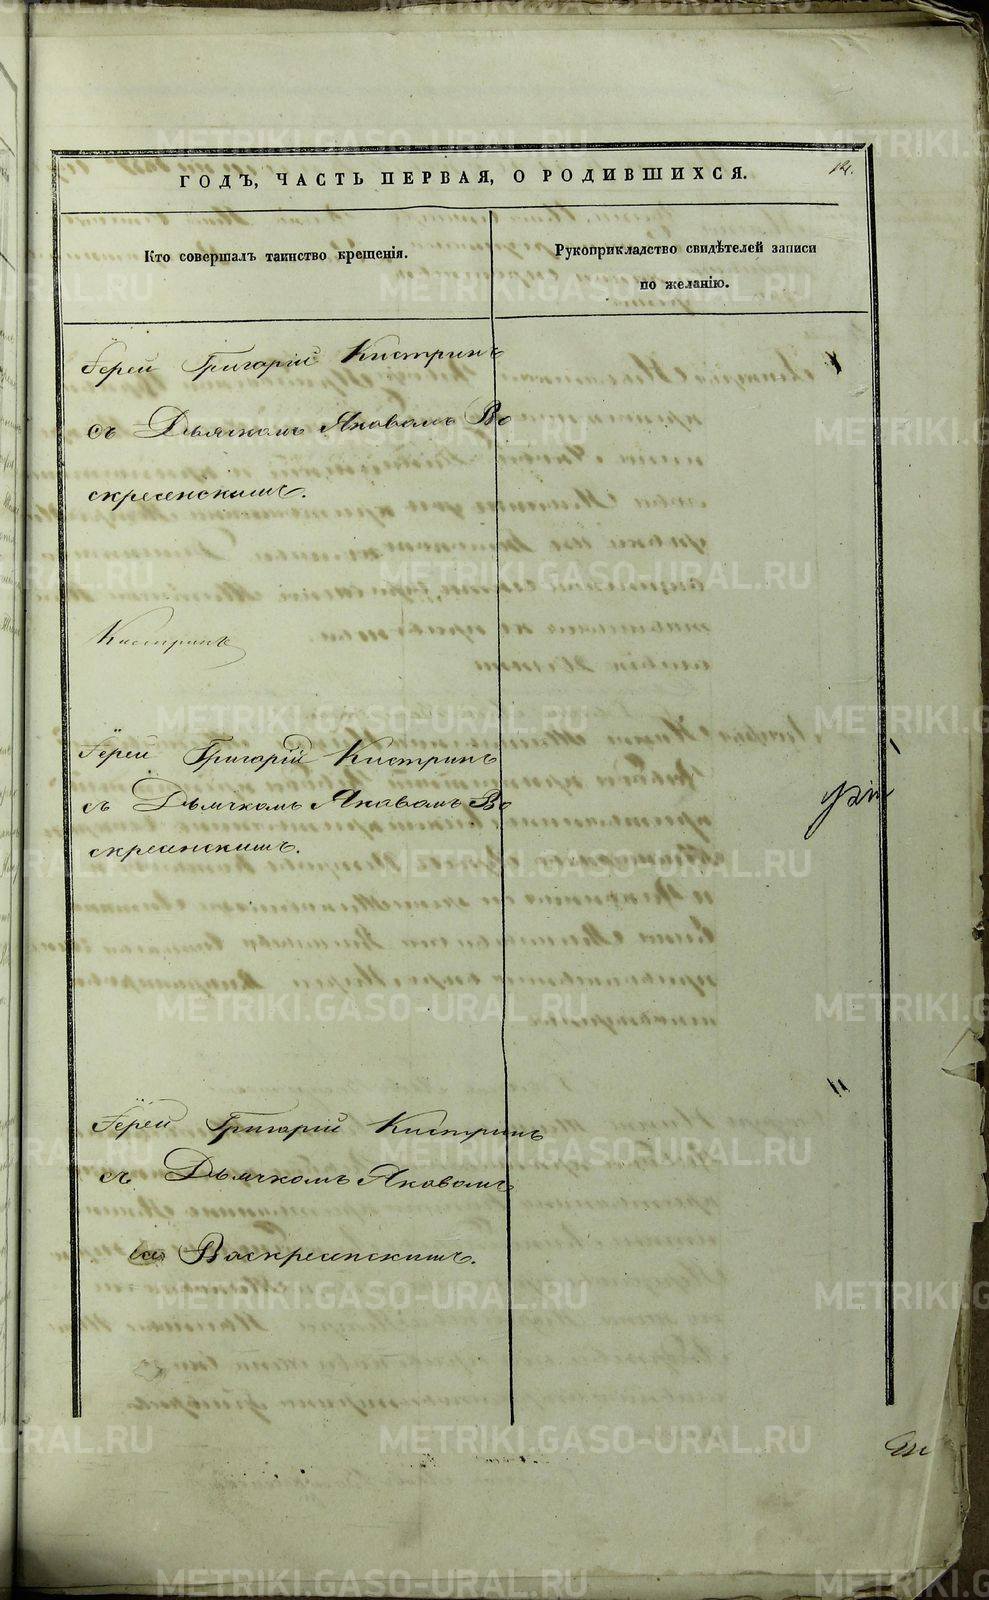 ГОДЪ, ЧАСТЬ ПЕРВАЯ, О РОДИВШИХСЯ.
Кто совершалъ таинство крещенія.
Рукоприкладство свидѣтелей записи
по желанію.
Іерей Григорій Кистринъ
съ Дьячкомъ Яковомъ Во
скресенскимъ.
Кистринъ
Іерей Григорій Кистринъ
съ Дьячкомъ Яковомъ Во
скресенскимъ.
Іерей Григорій Кистринъ
съ Дьячкомъ Яковомъ
Воскресенскимъ.
METRIKI.GASO-URAL.RU